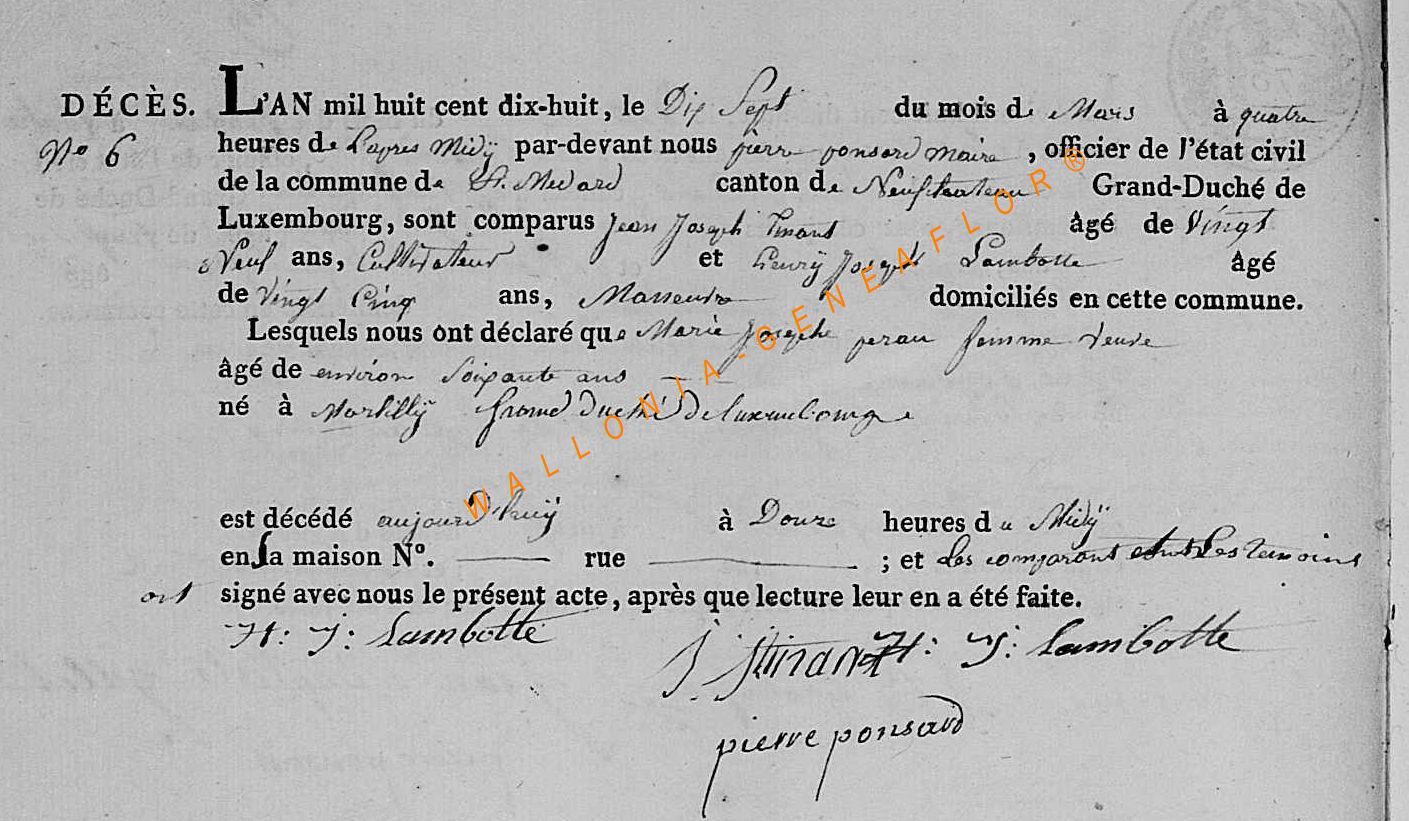 DÉCÈS. L'AN mil huit cent dix-huit, le Dix Sept du mois de Mars à quatre
No 6 heures de Lapres Midÿ par-devant nous pierre ponsard maire, officier de l'état civil
de la commune de St. Medard canton de Neufchateau Grand-Duché de
Luxembourg, sont comparus Jean Joseph âgé de Vingt
Neuf ans, Cultivateur et henrÿ Joseph Lambotte âgé
de Vingt Cinq ans, domiciliés en cette commune.
Lesquels nous ont déclaré que Marie Josephe femme veuve
âgé de environ Soixante ans
né à Martillÿ Grand Duché De Luxembourg
est décédé aujourd'huÿ à Douze heures du Midÿ
en sa maison N°. rue ; et Les comparants Les temoins
ont signé avec nous le présent acte, après que lecture leur en a été faite.
H: J: Lambotte
J H: J: Lambotte
pierre ponsard
WALLONIA-GENEAFLOR®